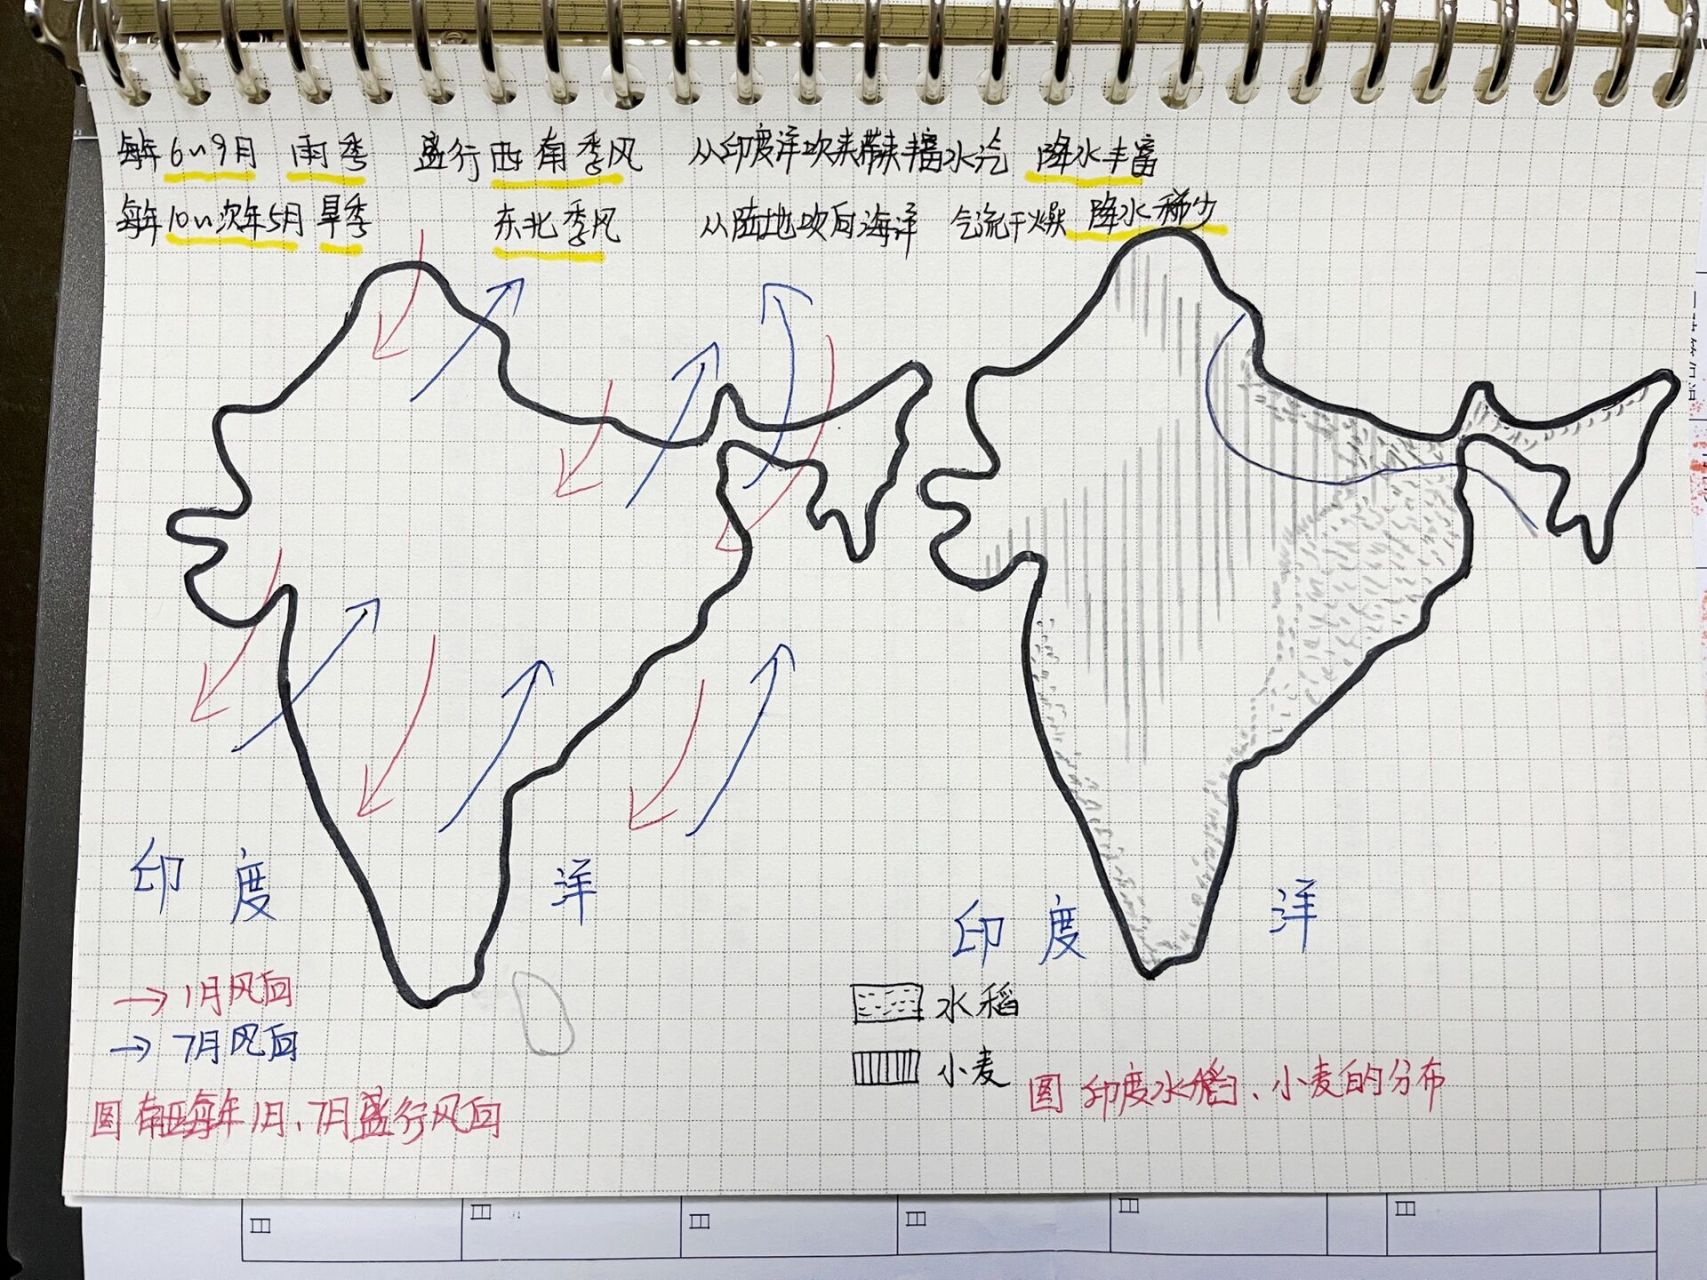 每年6~9月 雨季 盛行西南季风 从印度洋吹来带来丰富水汽 降水丰富
每年10~次年5月 旱季 东北季风 从陆地吹向海洋 气流干燥 降水稀少
印度洋
印度洋
→1月风向
→7月风向
图 南亚每年1月、7月盛行风向
水稻
小麦
图 印度水稻、小麦的分布